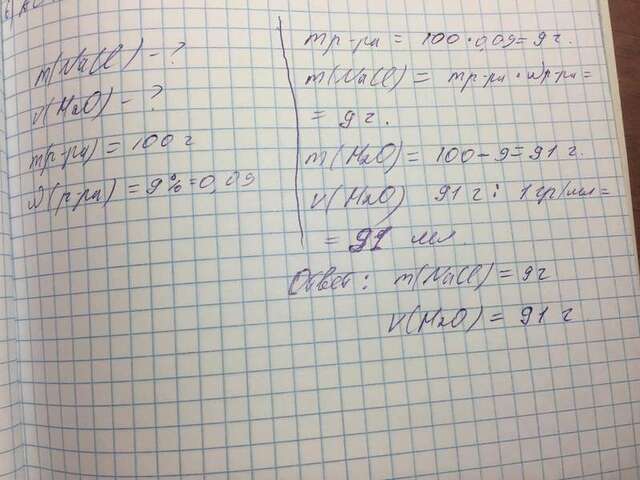 m(NaCl) - ?
V(H2O) - ?
m(р-ра) = 100 г
w(р-ра) = 9% = 0,09
mр-ра = 100 · 0,09 = 9 г.
m(NaCl) = mр-ра · wр-ра =
= 9 г.
m(H2O) = 100 - 9 = 91 г.
V(H2O) 91 г : 1 гр/мл =
= 91 мл
Ответ: m(NaCl) = 9 г
V(H2O) = 91 г